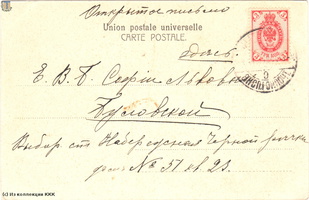 Открытое письмо
Union postale universelle
CARTE POSTALE.
Здесь.
Е. В. Б. Софіи Львовнѣ
Выборг. ст. Набережная Черной рѣчки
дом № 51 кв. 23.
(с) Из коллекции ККК